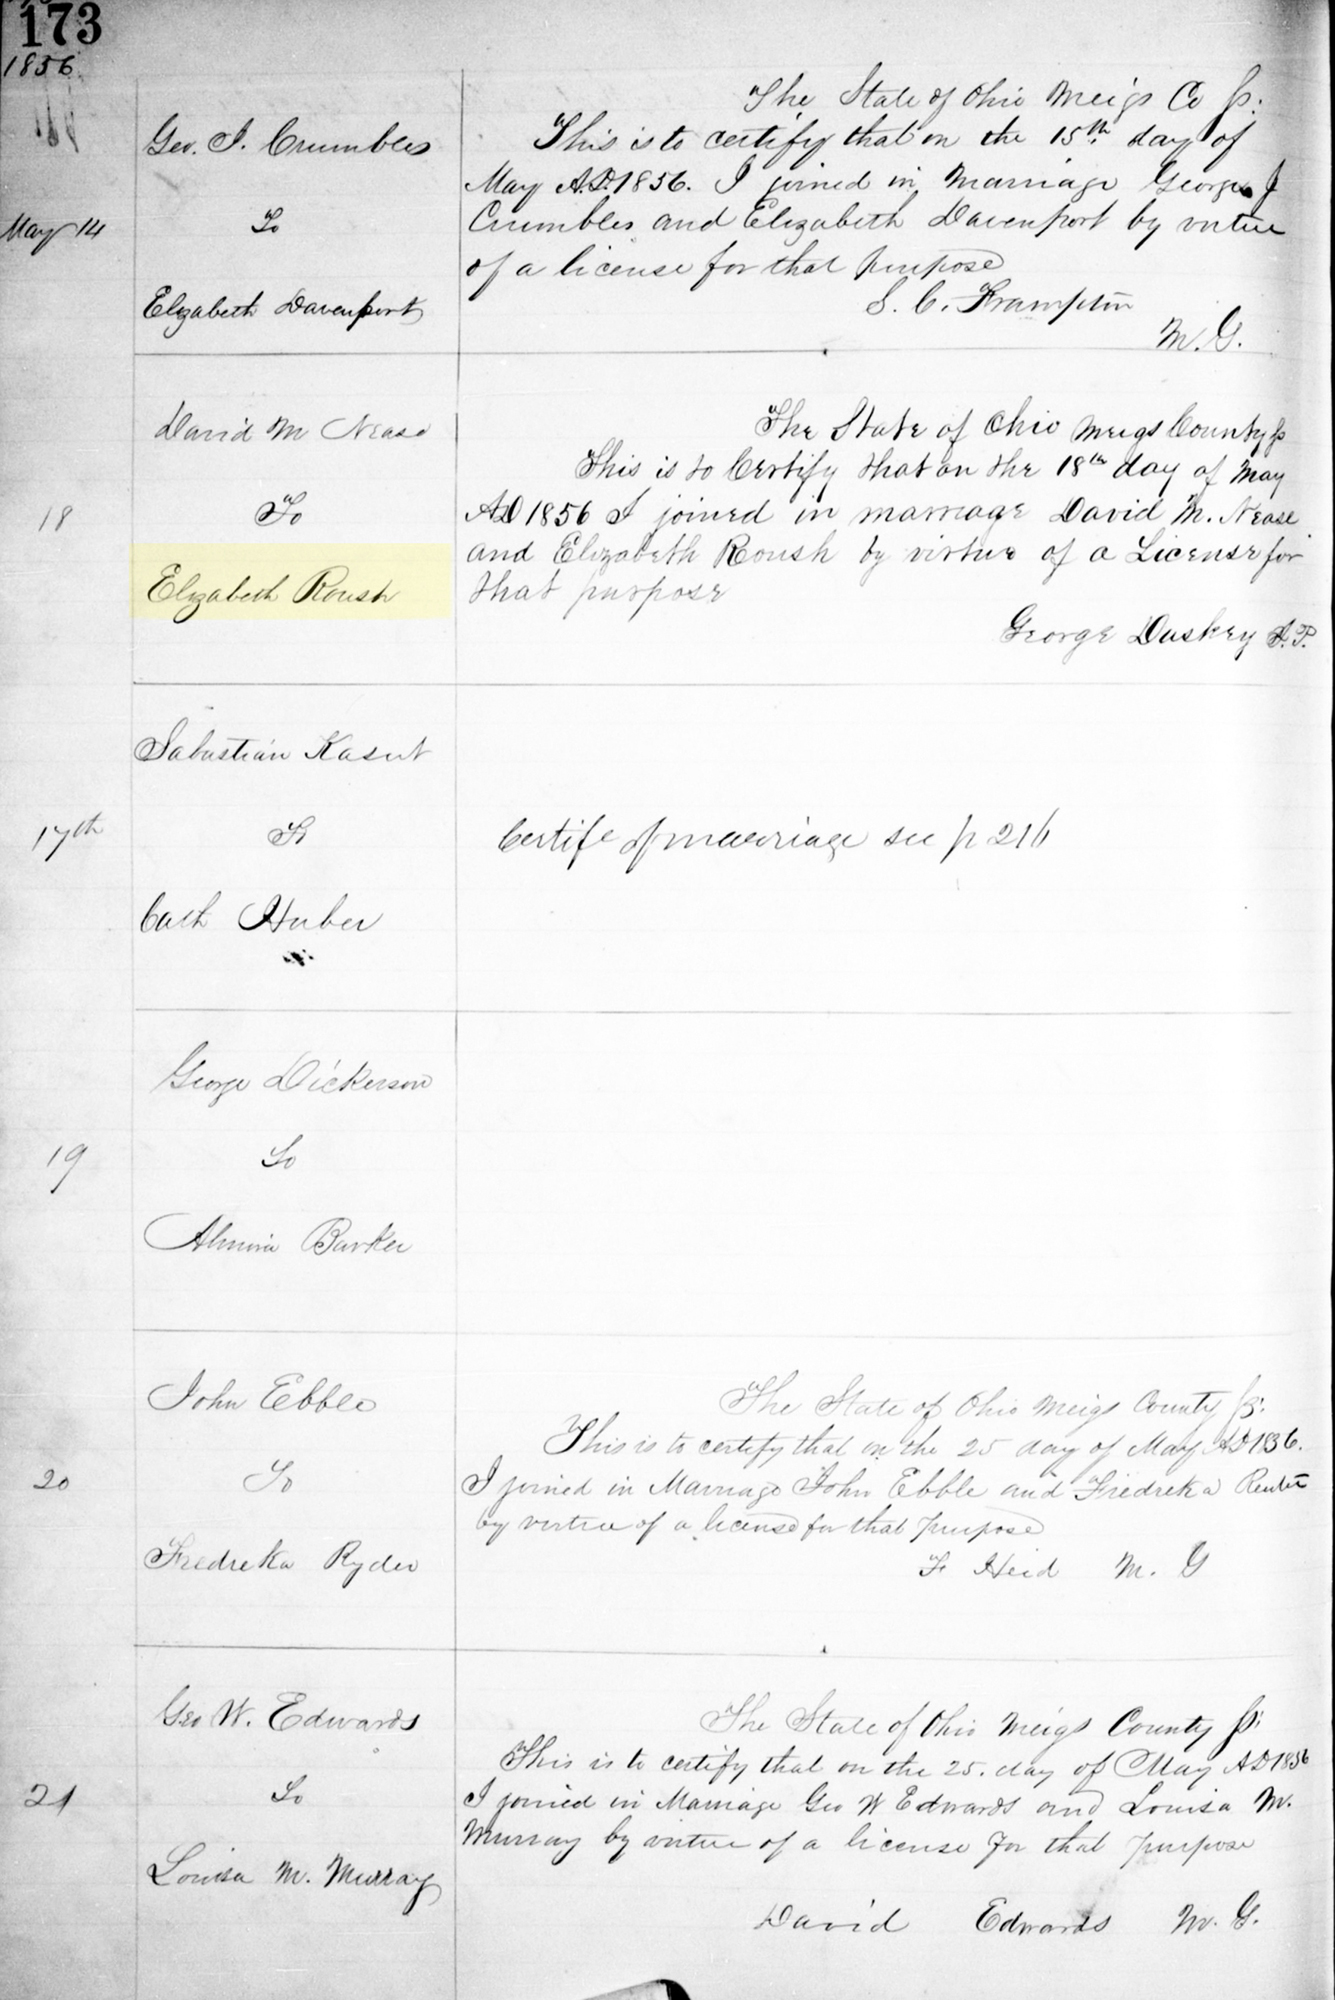 173
1856
Geo. J. Crumbles
May 14
To
Elizabeth Davenport
The State of Ohio Meigs Co ss.
This is to certify that on the 15th day of
May A.D. 1856. I joined in Marriage George J
Crumbles and Elizabeth Davenport by virtue
of a license for that purpose
S. C. Frampton
M. G.
David M Nease
18
To
Elizabeth Roush
The State of Ohio Meigs County ss
This is to Certify that on the 18th day of May
AD 1856 I joined in marriage David M. Nease
and Elizabeth Roush by virtue of a License for
that purpose
George Duskey J.P.
Sabastian Kasut
17th
To
Cath Huber
Certife of marriage see p 216
George Dickerson
19
To
Almira Barker
John Ebble
20
To
Fredreka Ryder
The State of Ohio Meigs County ss.
This is to certify that on the 25 day of May AD 1856.
I joined in Marriage John Ebble and Fredreka
by virtue of a license for that purpose
F Heid M. G
Geo W. Edwards
21
To
Louisa M. Murray
The State of Ohio Meigs County ss.
This is to certify that on the 25. day of May AD 1856
I joined in Marriage Geo W Edwards and Louisa M.
Murray by virtue of a license for that purpose
David Edwards M. G.